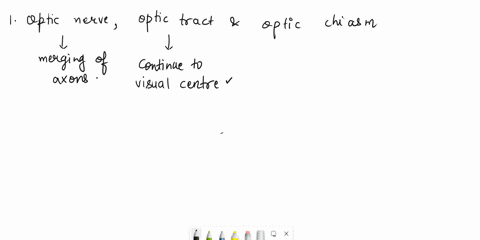 1. optic nerve, optic tract & optic chiasm
merging of axons.
continue to visual centre ✓